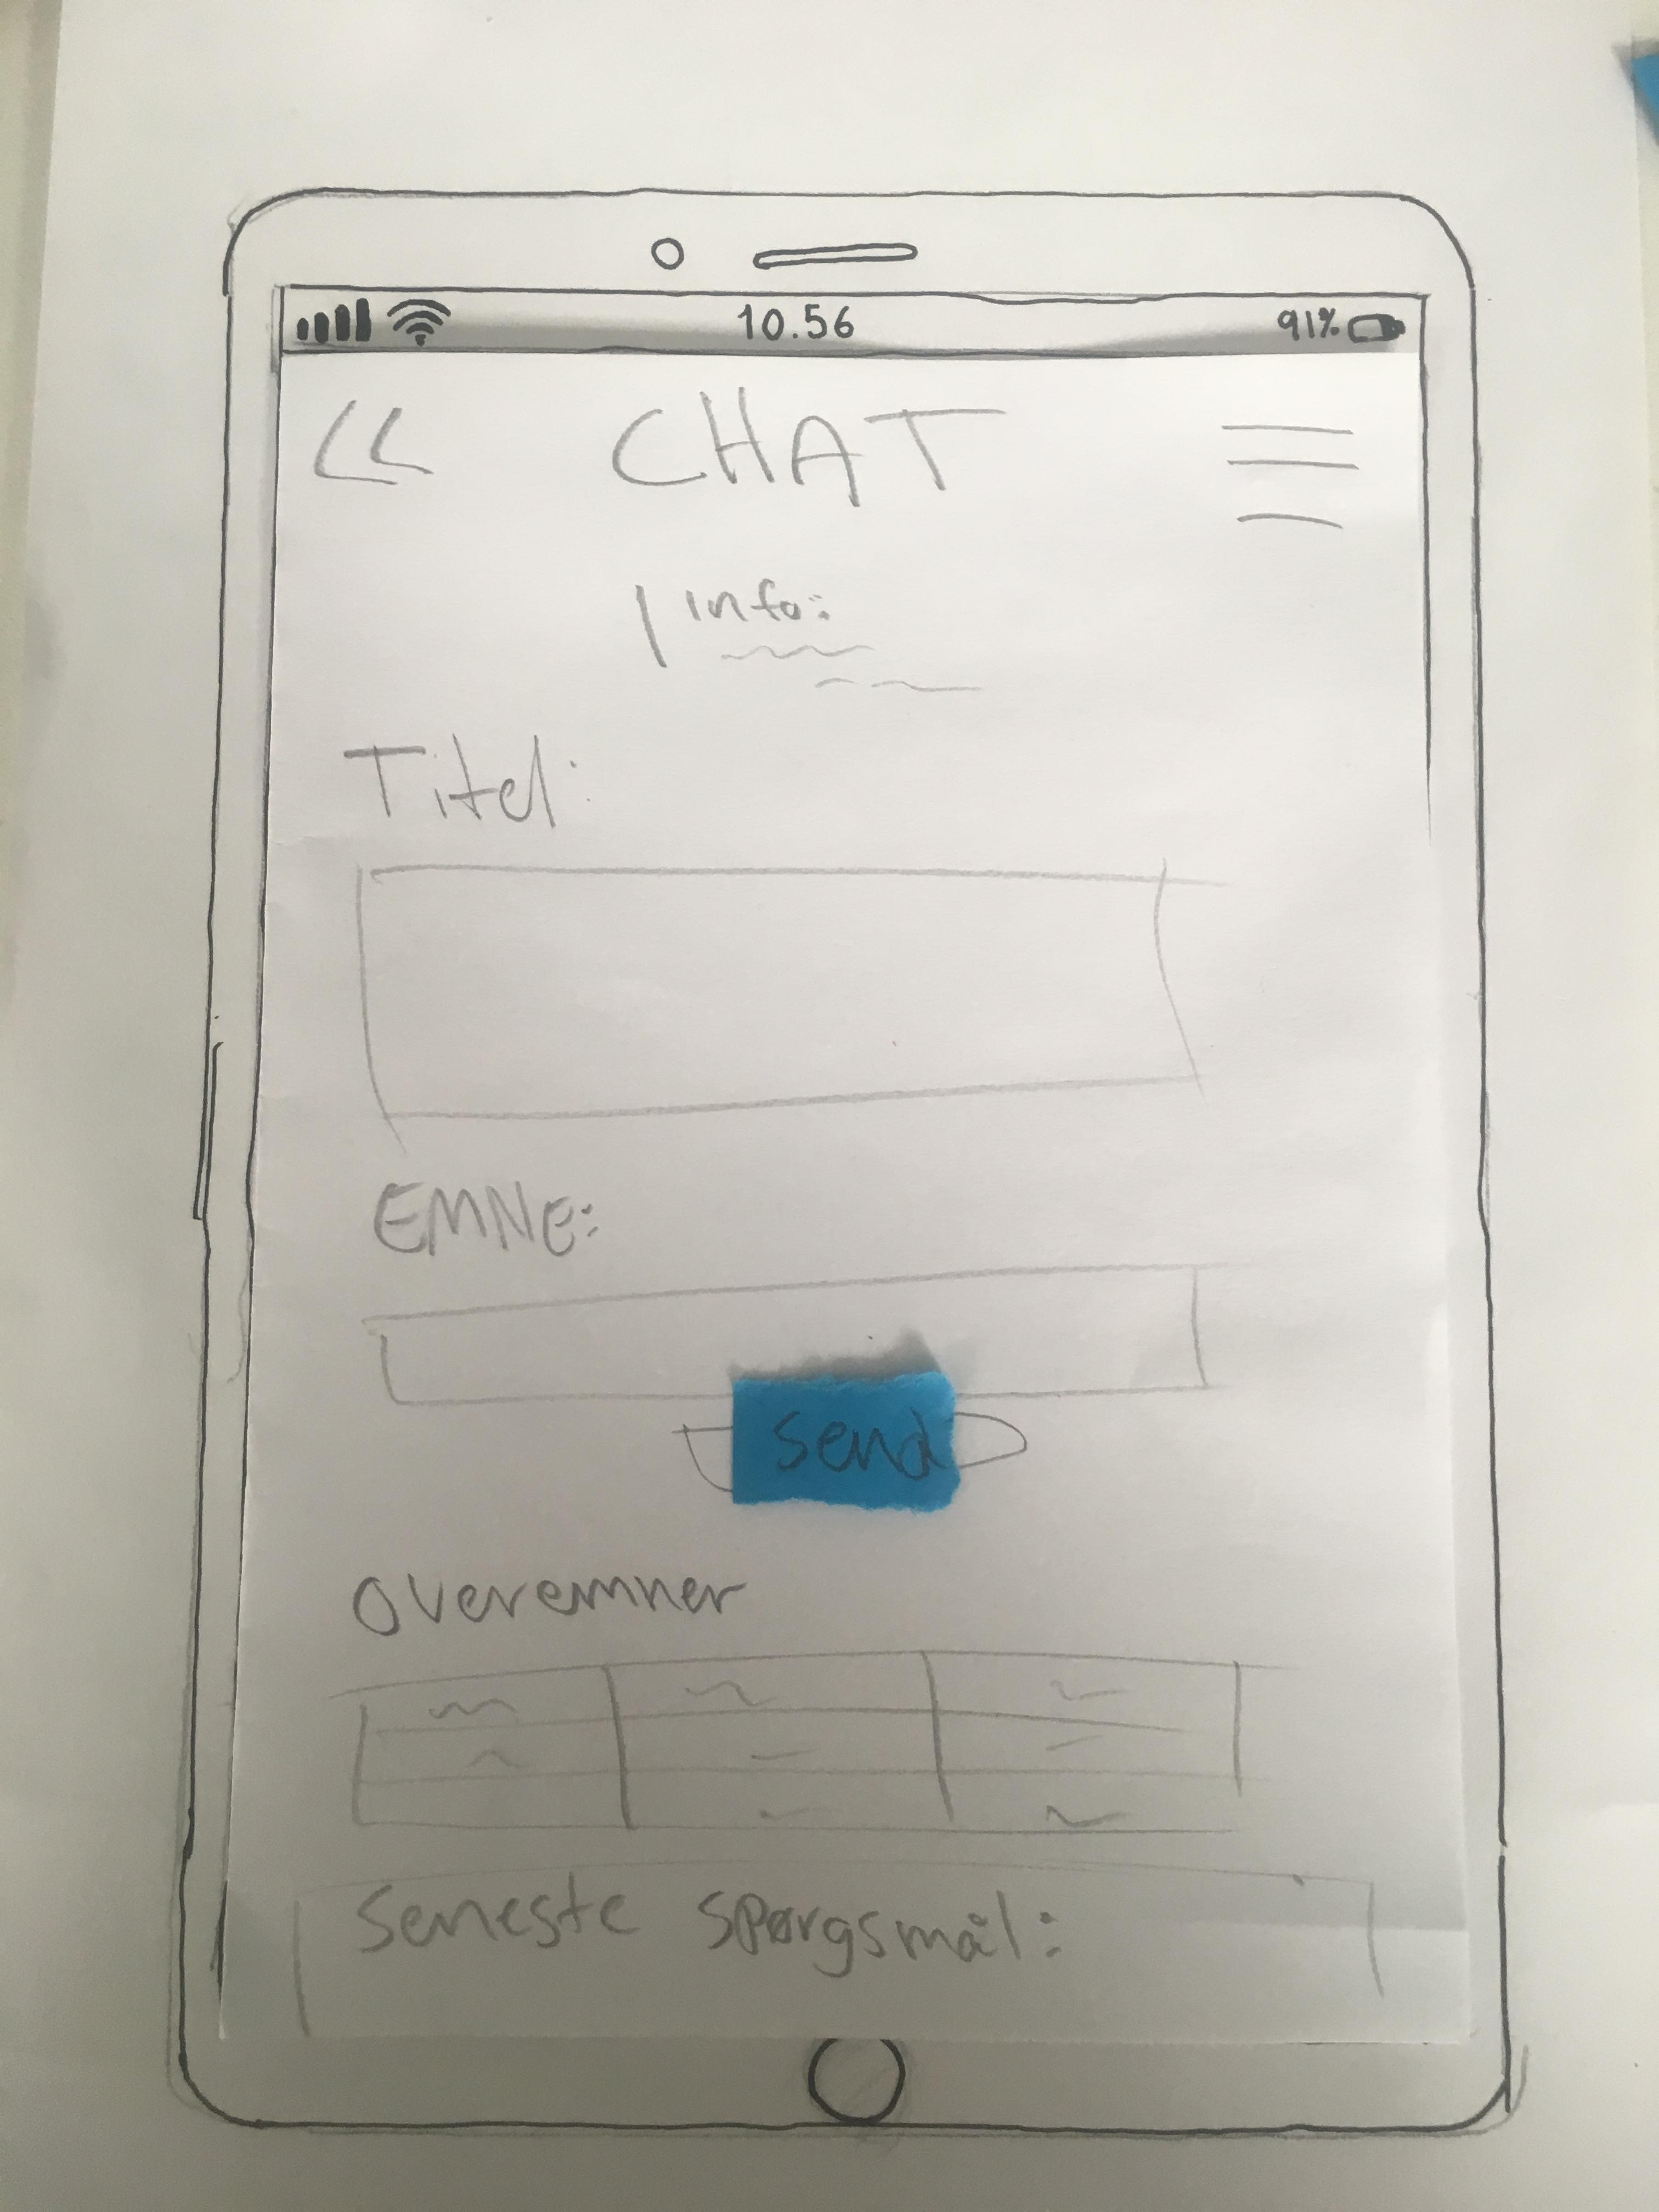 10.56 91%
CHAT
info:
Titel:
EMNE:
Send
Overemner
Seneste spørgsmål: